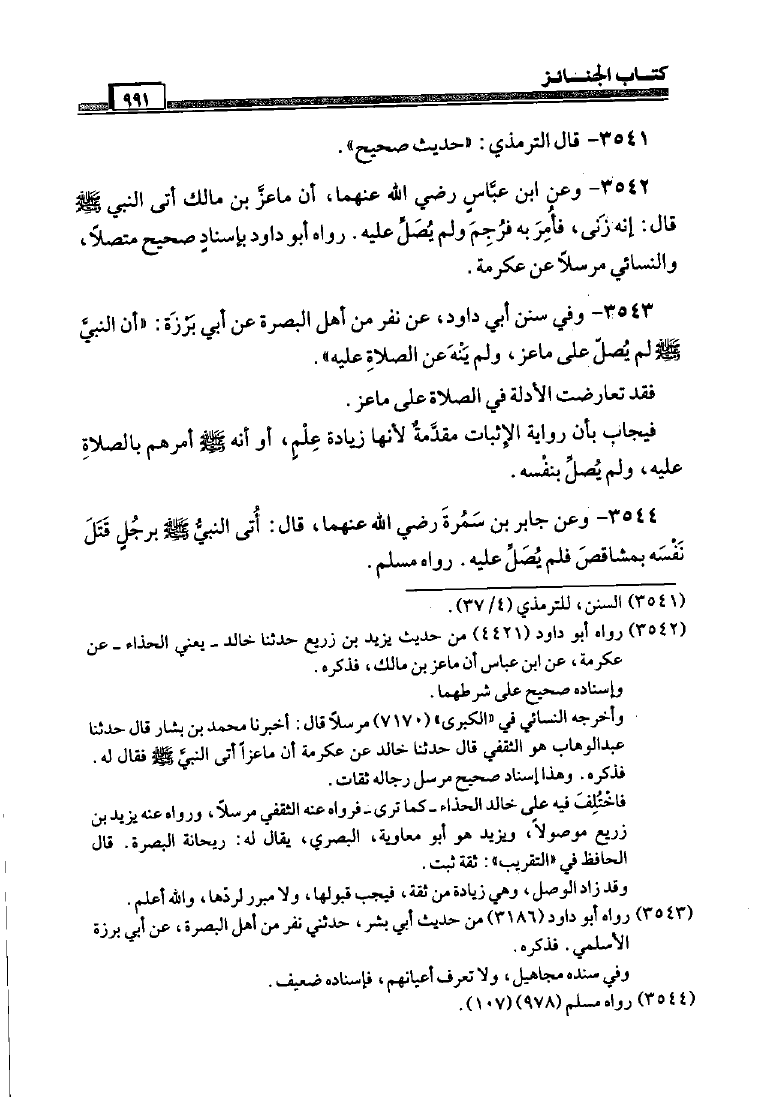 كتـاب الجنـائـز
٩٩١
٣٥٤١- قال الترمذي: «حديث صحيح».
٣٥٤٢- وعن ابن عبَّاسٍ رضي الله عنهما، أن ماعزَّ بن مالك أتى النبي ﷺ
قال: إنه زَنى، فأُمِرَ به فرُجِمَ ولم يُصَلِّ عليه. رواه أبو داود بإسنادٍ صحيح متصلاً،
والنسائي مرسلاً عن عكرمة.
٣٥٤٣- وفي سنن أبي داود، عن نفر من أهل البصرة عن أبي بَرْزَة: «أن النبيَّ
ﷺ لم يُصلّ على ماعز، ولم يَنْهَ عن الصلاةِ عليه».
فقد تعارضت الأدلة في الصلاة على ماعز.
فيجاب بأن رواية الإثبات مقدَّمةٌ لأنها زيادة عِلْمٍ، أو أنه ﷺ أمرهم بالصلاةِ
عليه، ولم يُصلِّ بنفْسه.
٣٥٤٤- وعن جابر بن سَمُرةَ رضي الله عنهما، قال: أُتى النبيُّ ﷺ برجُلٍ قَتَلَ
نَفْسَه بمشاقصَ فلم يُصَلِّ عليه. رواه مسلم.
(٣٥٤١) السنن، للترمذي (٤/ ٣٧).
(٣٥٤٢) رواه أبو داود (٤٤٢١) من حديث يزيد بن زريع حدثنا خالد ـ يعني الحذاء ـ عن
عكرمة، عن ابن عباس أن ماعز بن مالك، فذكره.
وإسناده صحيح على شرطهما.
وأخرجه النسائي في «الكبرى» (٧١٧٠) مرسلاً قال: أخبرنا محمد بن بشار قال حدثنا
عبدالوهاب هو الثقفي قال حدثنا خالد عن عكرمة أن ماعزاً أتى النبيَّ ﷺ فقال له.
فذكره. وهذا إسناد صحيح مرسل رجاله ثقات.
فاختُلِفَ فيه على خالد الحذاء ـ كما ترى ـ فرواه عنه الثقفي مرسلاً، ورواه عنه يزيد بن
زريع موصولاً، ويزيد هو أبو معاوية، البصري، يقال له: ريحانة البصرة. قال
الحافظ في «التقريب»: ثقة ثبت.
وقد زاد الوصل، وهي زيادة من ثقة، فيجب قبولها، ولا مبرر لردّها، والله أعلم.
(٣٥٤٣) رواه أبو داود (٣١٨٦) من حديث أبي بشر، حدثني نفر من أهل البصرة، عن أبي برزة
الأسلمي. فذكره.
وفي سنده مجاهيل، ولا تعرف أعيانهم، فإسناده ضعيف.
(٣٥٤٤) رواه مسلم (٩٧٨) (١٠٧).